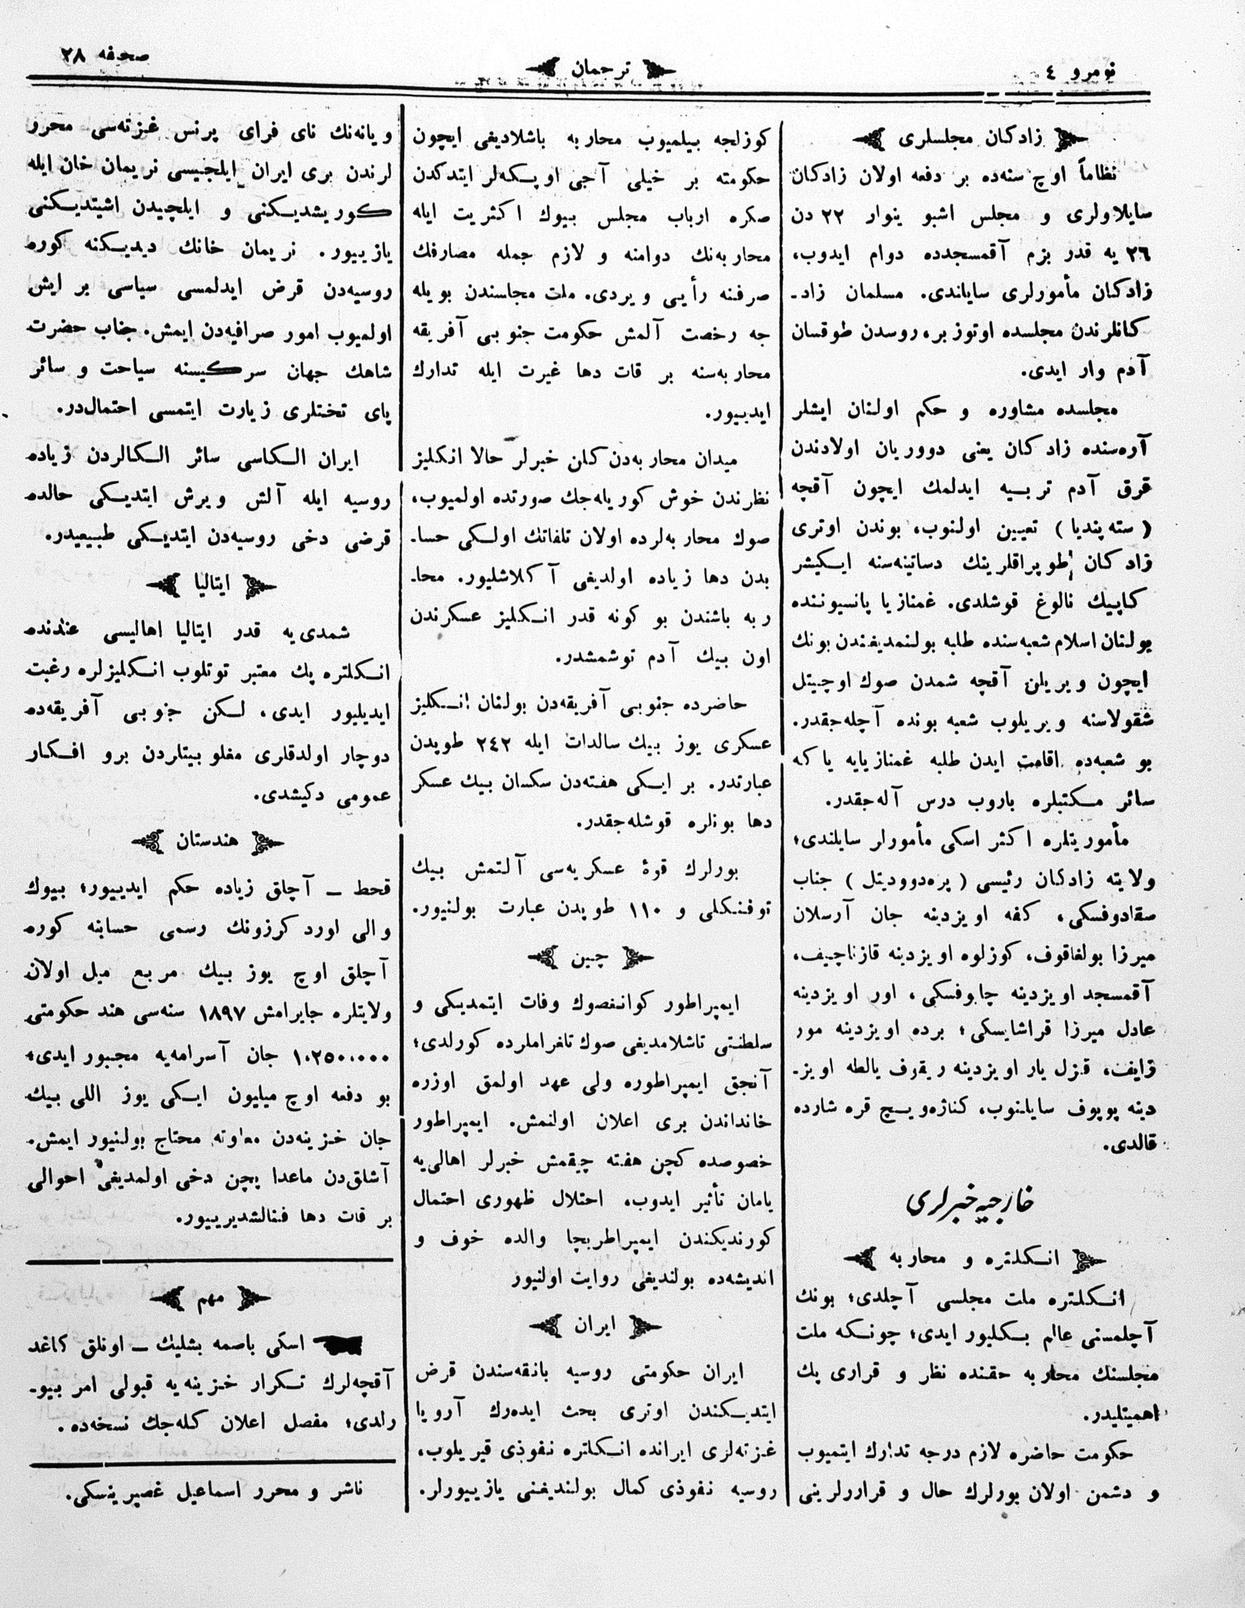 نومرو ٤
ترجمان
صحیفه ٢٨
زادكان مجلسلری
نظاماً اوچ سنه‌ده بر دفعه اولان زادكان
صایلاولری و مجلس اشبو ینوار ٢٢ دن
٢٦ یه قدر بزم آقمسجدده دوام ایدوب،
زادكان مأمورلری سایلاندی. مسلمان زاد-
كانلرندن مجلسده اوتوز بر، روسدن طوقسان
آدم وار ایدی.
مجلسده مشاوره و حكم اولنان ایشلر
آره‌سنده زادكان یعنی دووریان اولادندن
قرق آدم تربیه ایدلمك ایچون آقچه
( سته‌پندیا ) تعیین اولنوب، بوندن اوتری
زادكان طوپراقلرینك دساتینه‌سنه ایكیشر
كاپیك نالوغ قوشلدی. غمنازیا پانسیوننده
بولنان اسلام شعبه‌سنده طلبه بولنمدیغندن بونك
ایچون ویریلن آقچه شمدن صوك اوچیتل
شقولاسنه ویریلوب شعبه بونده آچله‌جقدر.
بو شعبه‌ده اقامت ایدن طلبه غمنازیایه یاكه
سائر مكتبلره باروب درس آله‌جقدر.
مأموریتلره اكثر اسكی مأمورلر سایلندی؛
ولایته زادكان رئیسی ( پره‌دوودیتل ) جناب
صقادوفسكی، كفه اویزدینه جان آرسلان
میرزا بولفاقوف، كوزلوه اویزدینه قازناچیف،
آقمسجد اویزدینه چابوفسكی، اور اویزدینه
عادل میرزا قراشایسكی؛ برده اویزدینه مور
زایف، قزل یار اویزدینه ریقوف یالطه اویز-
دینه پوپوف سایلنوب، كنازه‌ویچ قره شارده
قالدی.
خارجیه خبرلری
انكلتره و محاربه
انكلتره ملت مجلسی آچلدی؛ بونك
آچلمسنی عالم بكلیور ایدی؛ چونكه ملت
مجلسنك محاربه حقنده نظر و قراری پك
اهمیتلیدر.
حكومت حاضره لازم درجه تدارك ایتمیوب
و دشمن اولان بورلرك حال و قرارلرینی
كوزلجه بیلمیوب محاربه باشلادیغی ایچون
حكومته بر خیلی آجی اوپكه‌لر ایتدكدن
صكره ارباب مجلس بیوك اكثریت ایله
محاربه‌نك دوامنه و لازم جمله مصارفك
صرفنه رأیی ویردی. ملت مجلسندن بویله
جه رخصت آلمش حكومت جنوبی آفریقه
محاربه‌سنه بر قات دها غیرت ایله تدارك
ایدییور.
میدان محاربه‌دن كلن خبرلر حالا انكلیز
نظرندن خوش كوریله‌جك صورتده اولمیوب،
صوك محاربه‌لرده اولان تلفاتك اولكی حسا-
بدن دها زیاده اولدیغی آكلاشلیور. محا-
ربه باشندن بو كونه قدر انكلیز عسكرندن
اون بیك آدم توشمشدر.
حاضرده جنوبی آفریقه‌دن بولنان انكلیز
عسكری یوز بیك سالدات ایله ٢٤٢ طوپدن
عبارتدر. بر ایكی هفته‌دن سكسان بیك عسكر
دها بونلره قوشله‌جقدر.
بورلرك قرهٔ عسكریه‌سی آلتمش بیك
توفنكلی و ١١٠ طوپدن عبارت بولنیور.
چین
ایمپراطور كوانغصوك وفات ایتمدیكی و
سلطنتی تاشلامدیغی صوك تلغراملرده كورلدی؛
آنجق ایمپراطوره ولی عهد اولمق اوزره
خانداندن بری اعلان اولنمش. ایمپراطور
خصوصده كچن هفته چیقمش خبرلر اهالی‌یه
یامان تأثیر ایدوب، احتلال ظهوری احتمال
كورندیكندن ایمپراطربچا والده خوف و
اندیشه‌ده بولندیغی روایت اولنیور
ایران
ایران حكومتی روسیه بانقه‌سندن قرض
ایتدیكندن اوتری بحث ایده‌رك آروپا
غزته‌لری ایرانده انكلتره نفوذی قیریلوب،
روسیه نفوذی كمال بولندیغنی یازییورلر.
ویانه‌نك نای فرای پرنس غزته‌سی محرر
لرندن بری ایران ایلچیسی نریمان خان ایله
كوریشدیكنی و ایلچیدن اشیتدیكنی
یازییور. نریمان خانك دیدیكنه كوره
روسیه‌دن قرض ایدلمسی سیاسی بر ایش
اولمیوب امور صرافیه‌دن ایمش. جناب حضرت
شاهك جهان سركیسنه سیاحت و سائر
پای تختلری زیارت ایتمسی احتمال‌در.
ایران الكاسی سائر الكالردن زیاده
روسیه ایله آلش ویرش ایتدیكی حالده
قرضی دخی روسیه‌دن ایتدیكی طبیعیدر.
ایتالیا
شمدی‌یه قدر ایتالیا اهالیسی عندنده
انكلتره پك معتبر توتلوب انكلیزلره رغبت
ایدیلیور ایدی، لكن جنوبی آفریقه‌ده
دوچار اولدقلری مغلوبیتلردن برو افكار
عمومی دكیشدی.
هندستان
قحط — آچلق زیاده حكم ایدییور؛ بیوك
والی لورد كرزونك رسمی حسابنه كوره
آچلق اوچ یوز بیك مربع میل اولان
ولایتلره جایرامش ١٨٩٧ سنه‌سی هند حكومتی
١٠٢٥٠،٠٠٠ جان آسرامه‌یه مجبور ایدی؛
بو دفعه اوچ میلیون ایكی یوز اللی بیك
جان خزینه‌دن معاونه محتاج بولنیور ایمش.
آشلق‌دن ماعدا پچن دخی اولمدیغی احوالی
بر قات دها فنالشدیرییور.
مهم
اسكی باصمه بشلیك — اونلق كاغد
آقچه‌لرك تكرار خزینه‌یه قبولی امر بیو-
رلدی؛ مفصل اعلان كله‌جك نسخه‌ده.
ناشر و محرر اسماعیل غصپرینسكی.